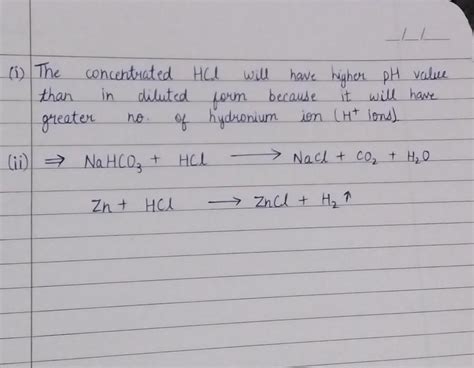 _/_/_
(i) The concentrated HCl will have higher pH value
than in diluted form because it will have
greater no. of hydronium ion (H⁺ ions)
(ii) ⇒ NaHCO₃ + HCl → NaCl + CO₂ + H₂O
Zn + HCl → ZnCl + H₂ ↑